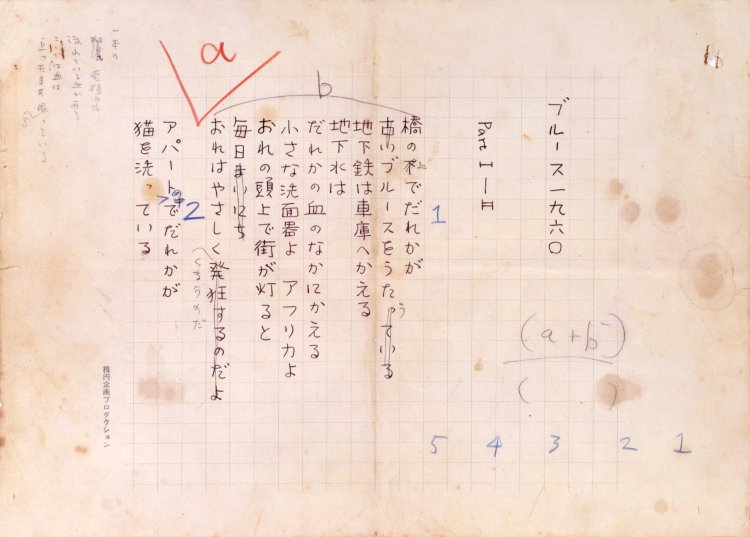 ブルース一九六〇
Part I—H
1
橋の上でだれかが
古いブルースをうたっている
地下鉄は車庫へかえる
地下水は
だれかの血のなかにかえる
小さな洗面器よ アフリカよ
おれの頭上で街が灯ると
毎日まいにち
おれはやさしく発狂するのだよ
くるうのだ
2
アパートの中でだれかが
猫を洗っている
a
b
(a+b)
(　　)
5 4 3 2 1
一本の
流れている血がある
立ったまま眠っている
楕円企画プロダクション